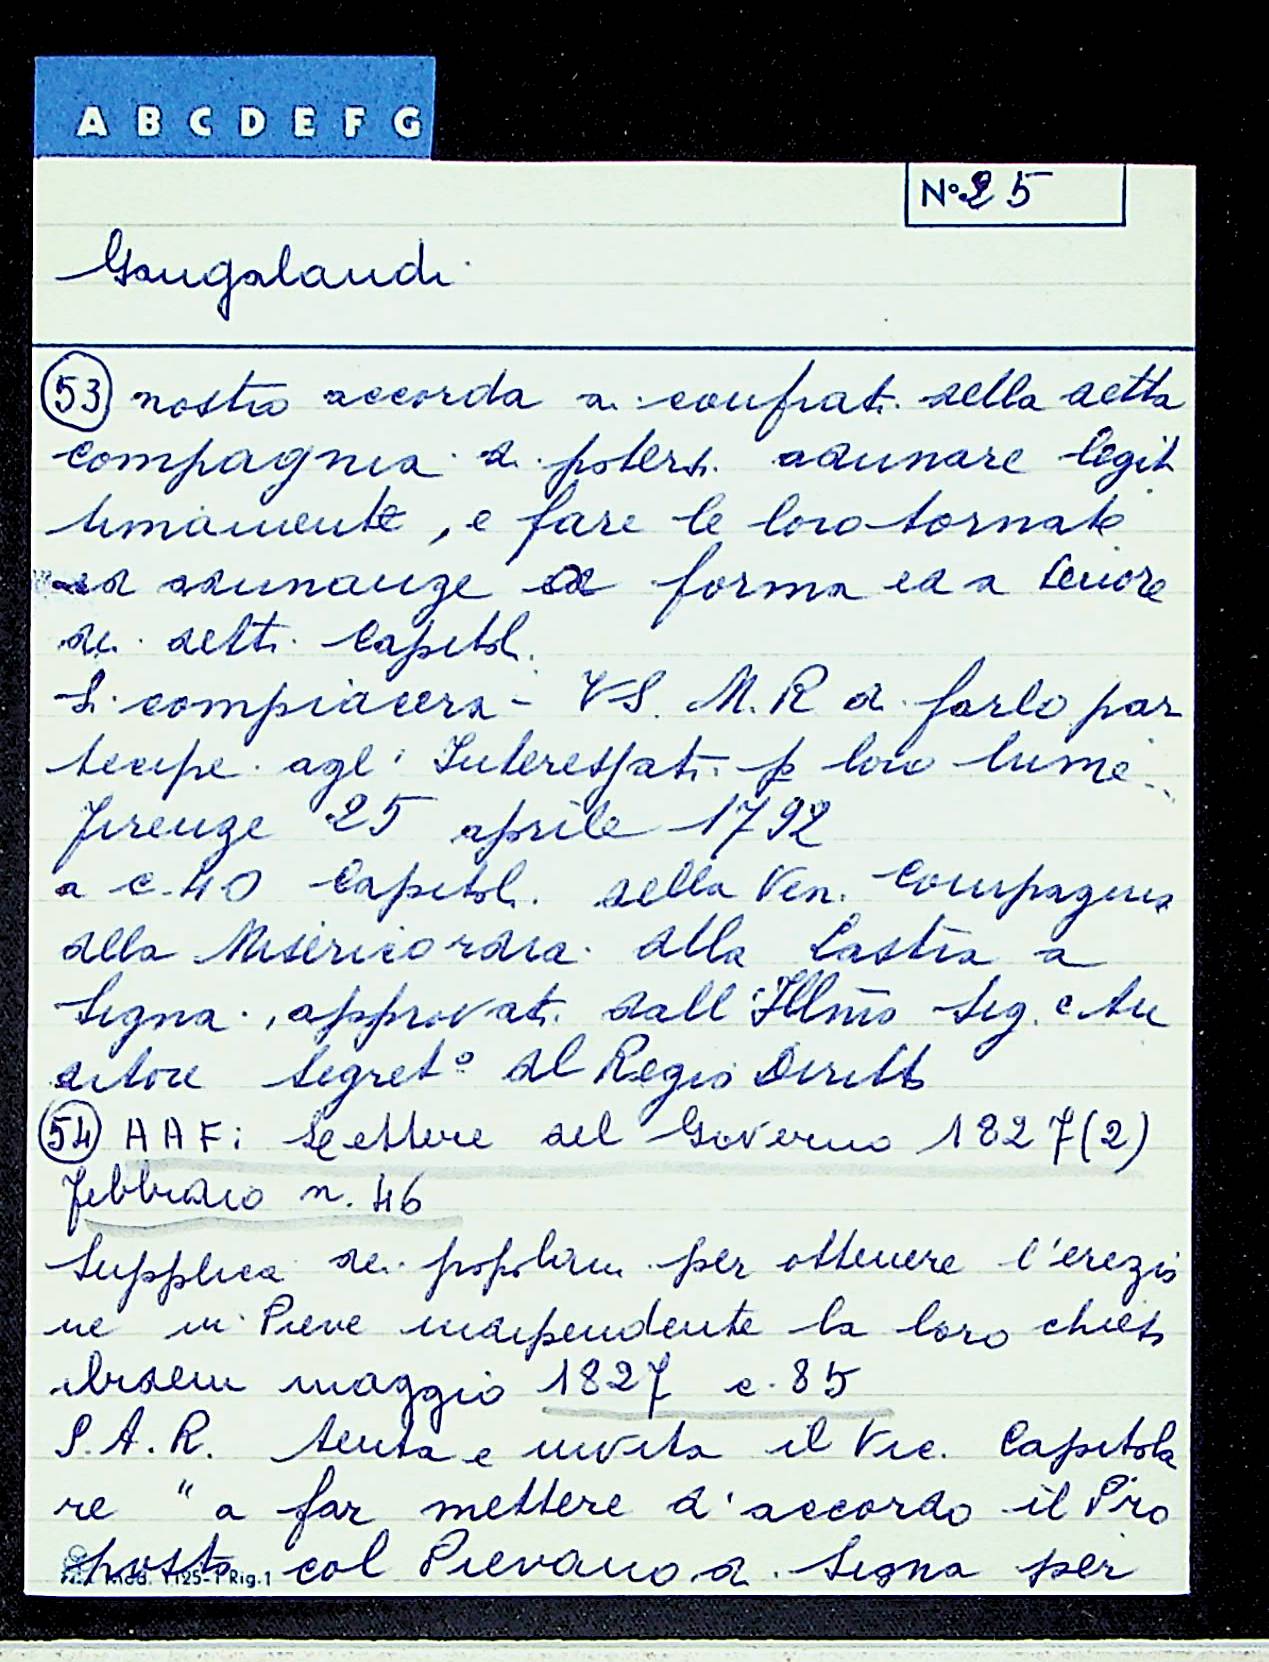 A B C D E F G
N° 25
Gangalandi
53 nostro accorda ai confrati della detta
compagnia di potersi adunare legit
timamente, e fare le loro tornate
ed adunanze a forma ed a tenore
dei detti Capitoli.
Si compiacerà VS. M. R di farlo par
tecipe agl'Interessati p loro lume
Firenze 25 aprile 1792
a c. 40 Capitoli della Ven. Compagnia
della Misericordia della Lastra a
Segna, approvati dall'Illmo Sig. Au
ditore Segret° del Regio Diritto
54 AAF: Lettere del Governo 1827 (2)
Febbraio n. 46
Supplica dei popolani per ottenere l'erezio
ne in Pieve indipendente la loro chiesa
ibidem maggio 1827 c. 85
S.A.R. tenta e invita il Vic. Capitola
re "a far mettere d'accordo il Pro
posto col Pievano di Segna per
Rig.1